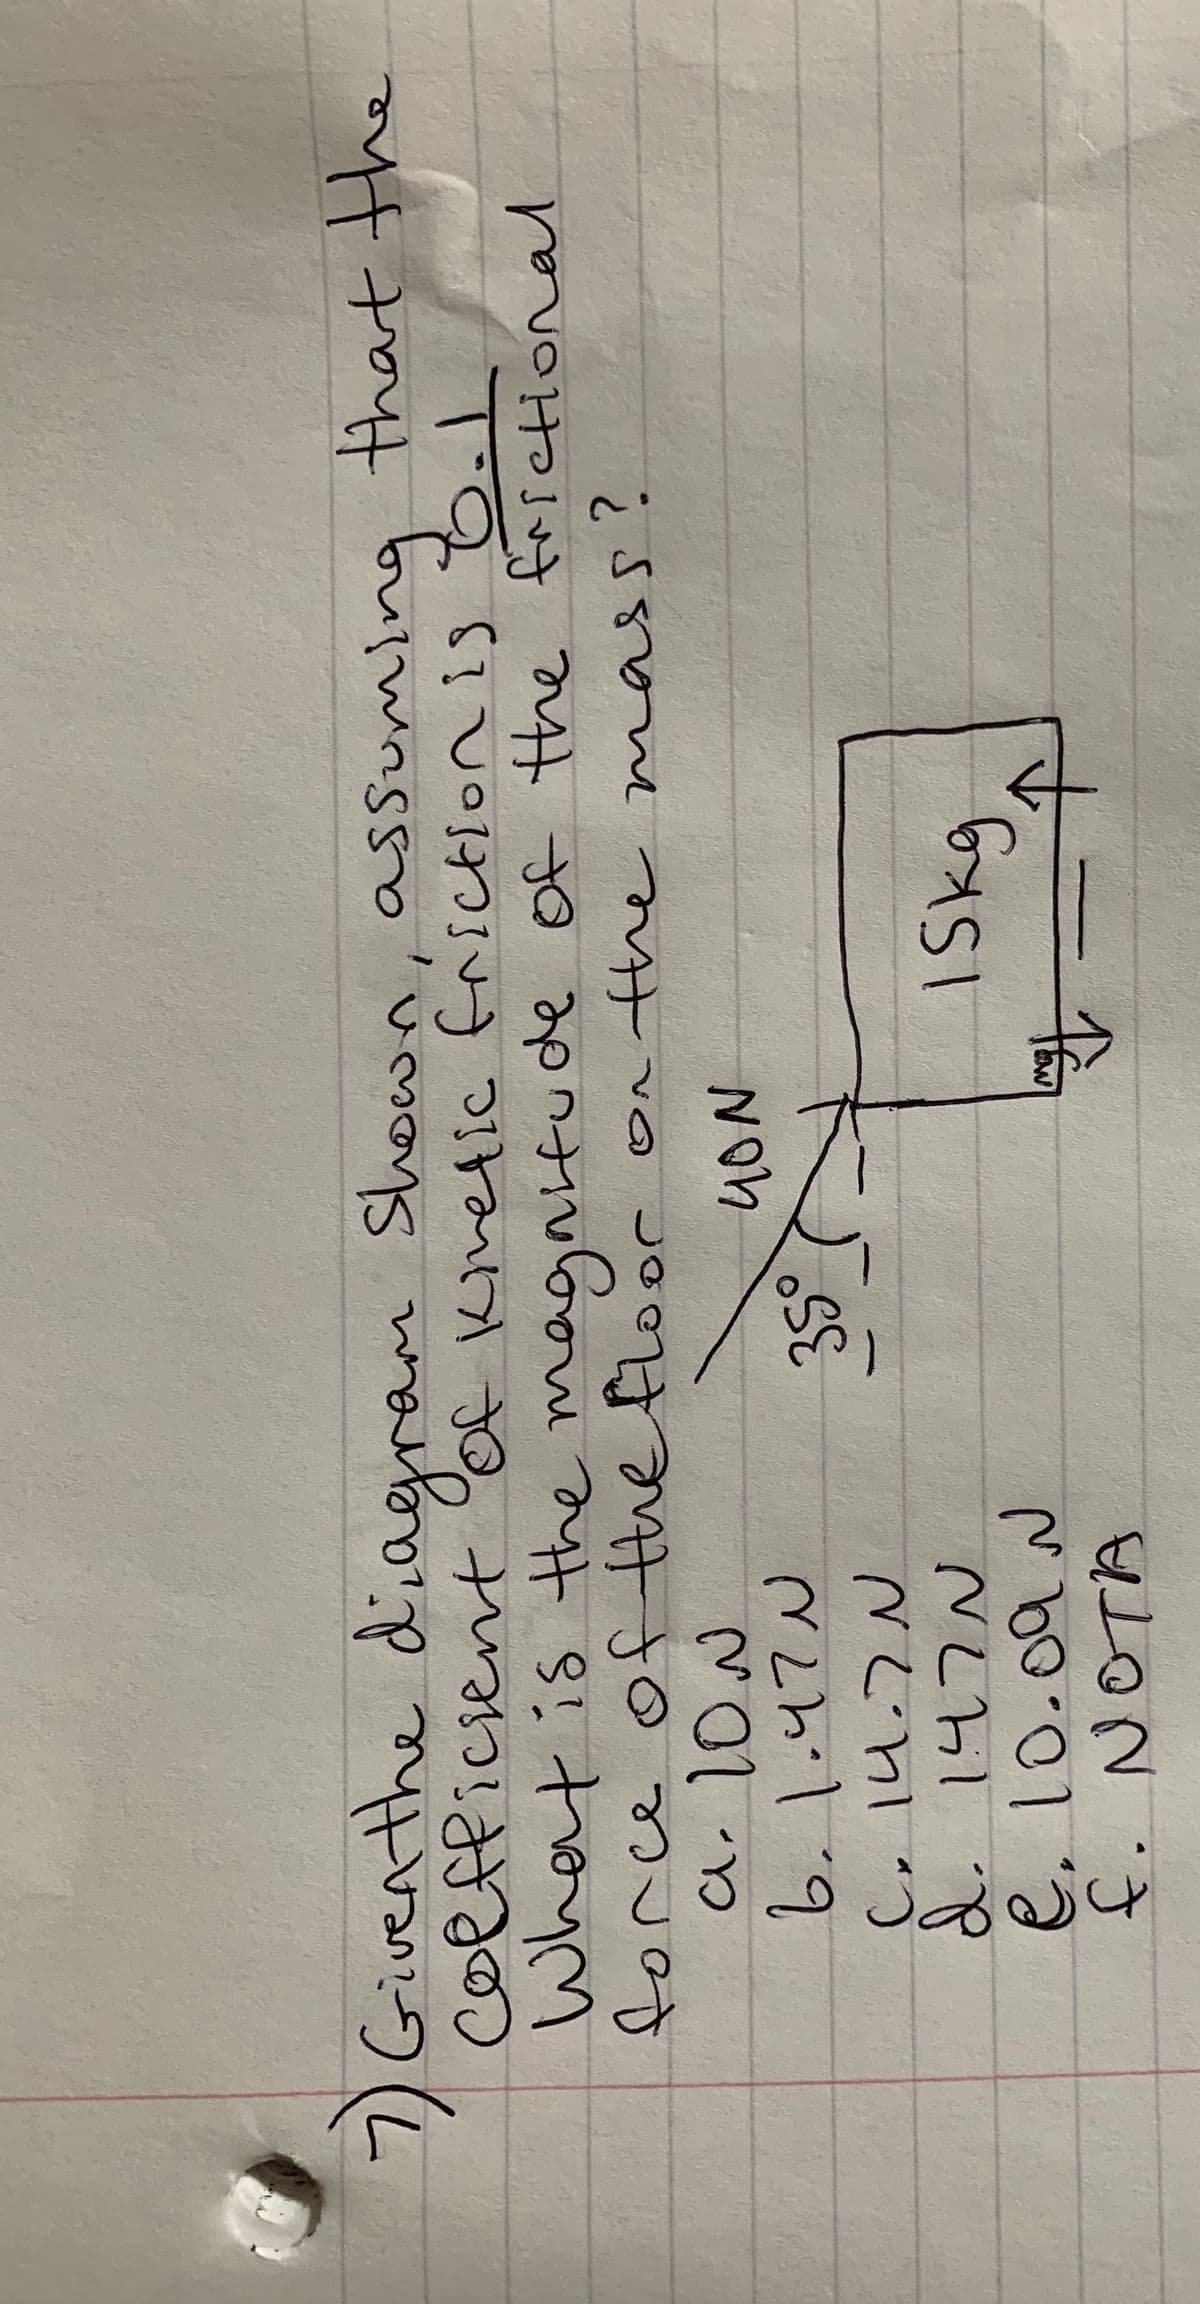 7) Given the diagram shown, assuming that the
coefficient of kinetic friction is 0.1
What is the magnitude of the frictional
force of the floor on the mass?
a. 10N
40N
b. 1.47N
35°
c. 14.7N
15kg
d. 147N
mg
e. 10.09N
f. NOTA